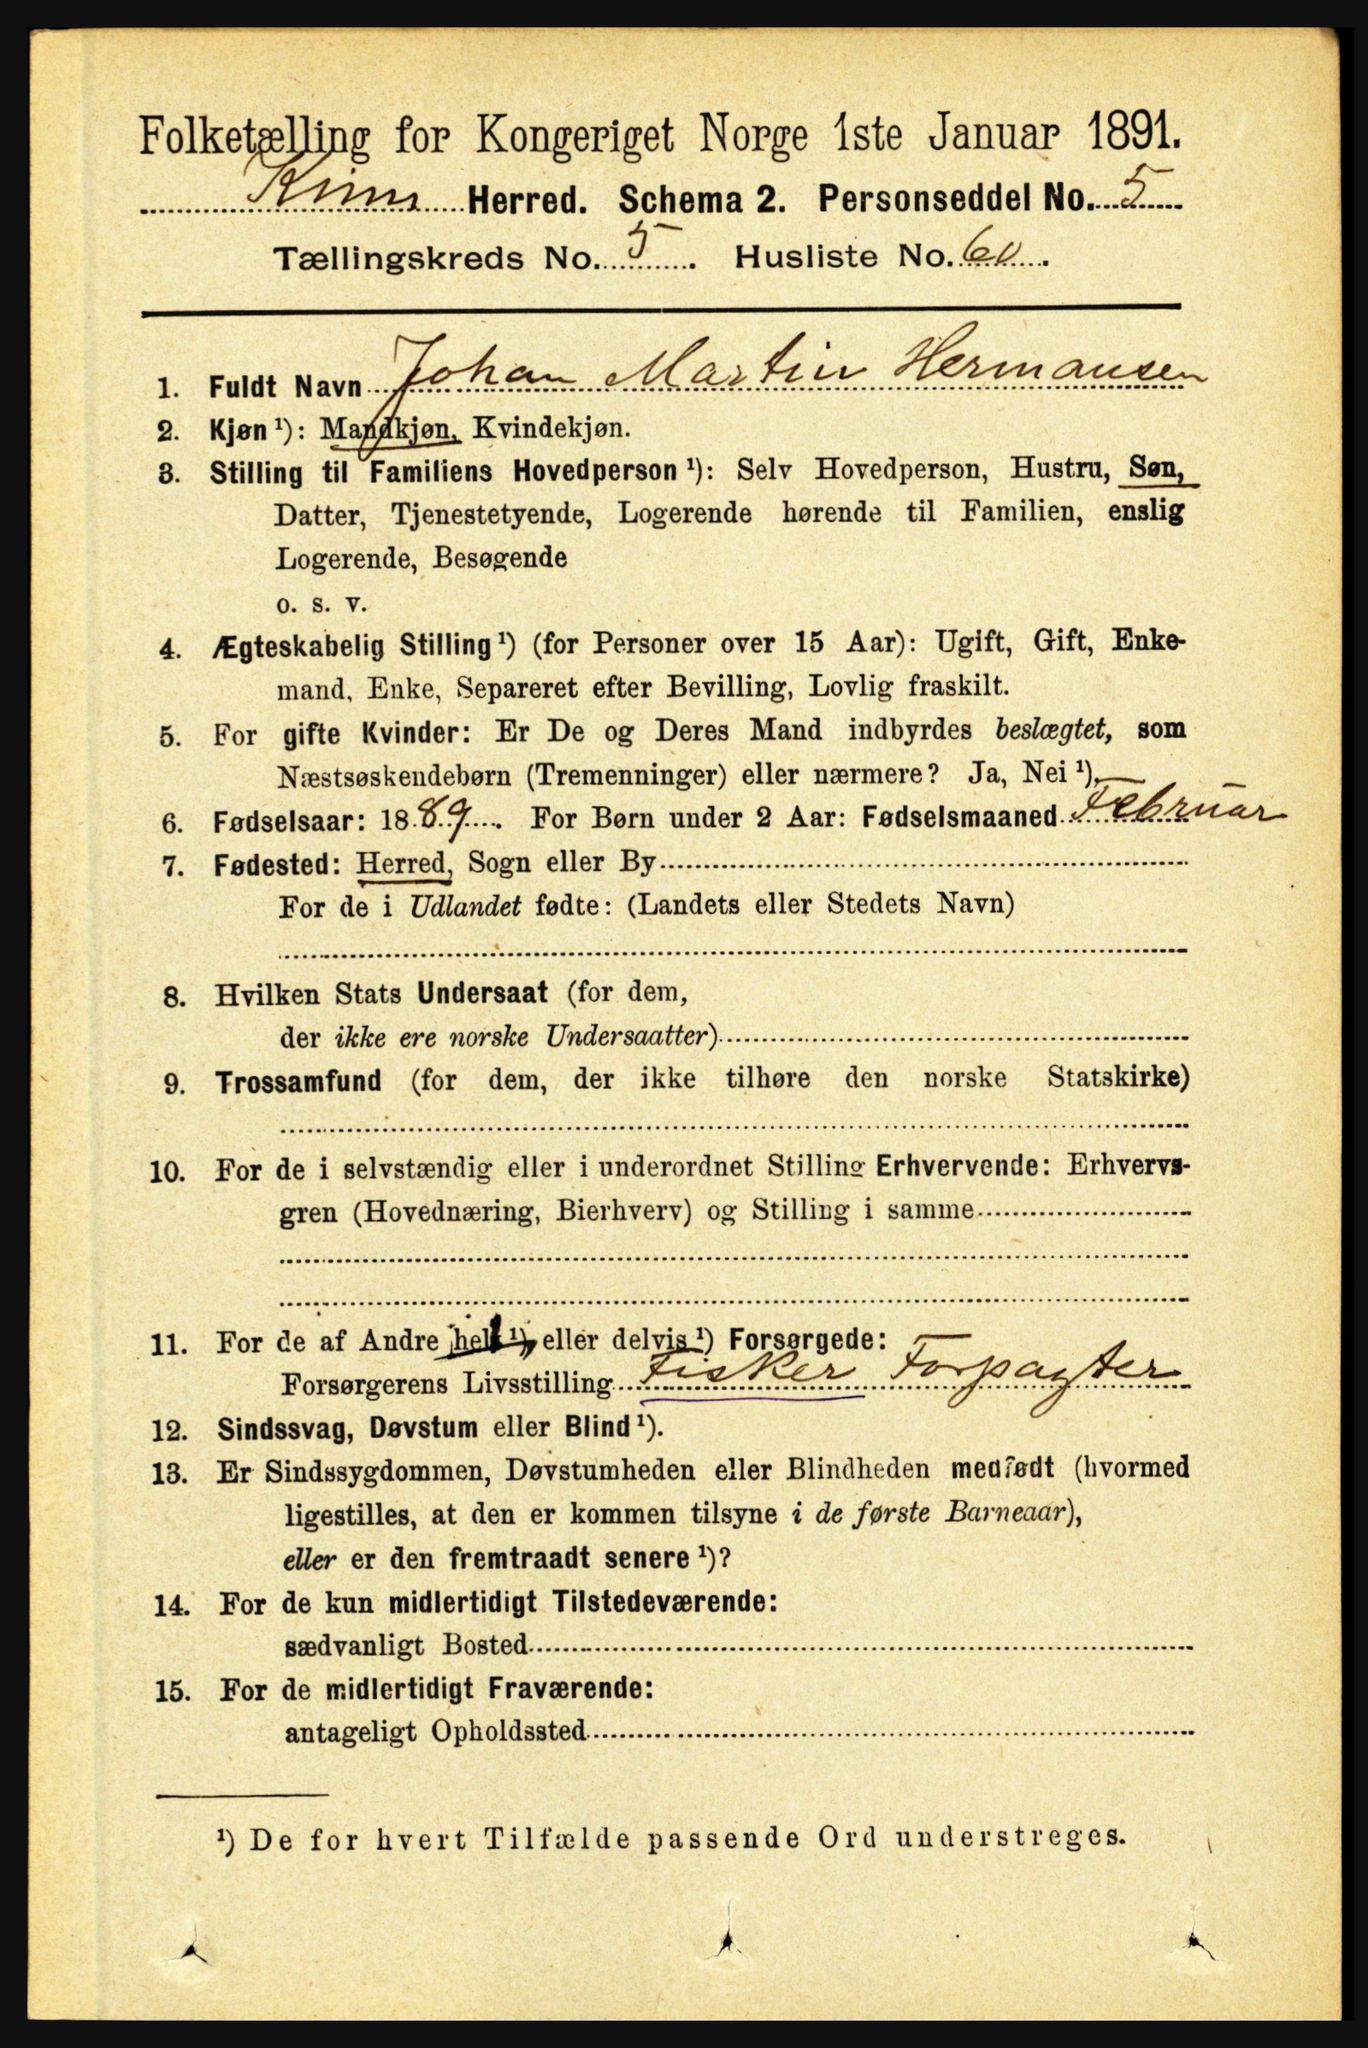 Folketælling for Kongeriget Norge 1ste Januar 1891.
Kinn Herred. Schema 2. Personseddel No. 5
Tællingskreds No. 5. Husliste No. 60.
1. Fuldt Navn Johan Martin Hermansen
2. Kjøn ¹): Mandkjøn, Kvindekjøn.
3. Stilling til Familiens Hovedperson ¹): Selv Hovedperson, Hustru, Søn,
Datter, Tjenestetyende, Logerende hørende til Familien, enslig
Logerende, Besøgende
o. s. v.
4. Ægteskabelig Stilling ¹) (for Personer over 15 Aar): Ugift, Gift, Enke-
mand, Enke, Separeret efter Bevilling, Lovlig fraskilt.
5. For gifte Kvinder: Er De og Deres Mand indbyrdes beslægtet, som
Næstsøskendebørn (Tremenninger) eller nærmere? Ja, Nei ¹).
6. Fødselsaar: 1889. For Børn under 2 Aar: Fødselsmaaned Februar
7. Fødested: Herred, Sogn eller By
For de i Udlandet fødte: (Landets eller Stedets Navn)
8. Hvilken Stats Undersaat (for dem,
der ikke ere norske Undersaatter)
9. Trossamfund (for dem, der ikke tilhøre den norske Statskirke)
10. For de i selvstændig eller i underordnet Stilling Erhvervende: Erhvervs-
gren (Hovednæring, Bierhverv) og Stilling i samme
11. For de af Andre helt ¹), eller delvis ¹) Forsørgede:
Forsørgerens Livsstilling Fisker Forpagter
12. Sindssvag, Døvstum eller Blind ¹).
13. Er Sindssygdommen, Døvstumheden eller Blindheden medfødt (hvormed
ligestilles, at den er kommen tilsyne i de første Barneaar),
eller er den fremtraadt senere ¹)?
14. For de kun midlertidigt Tilstedeværende:
sædvanligt Bosted
15. For de midlertidigt Fraværende:
antageligt Opholdssted
¹) De for hvert Tilfælde passende Ord understreges.